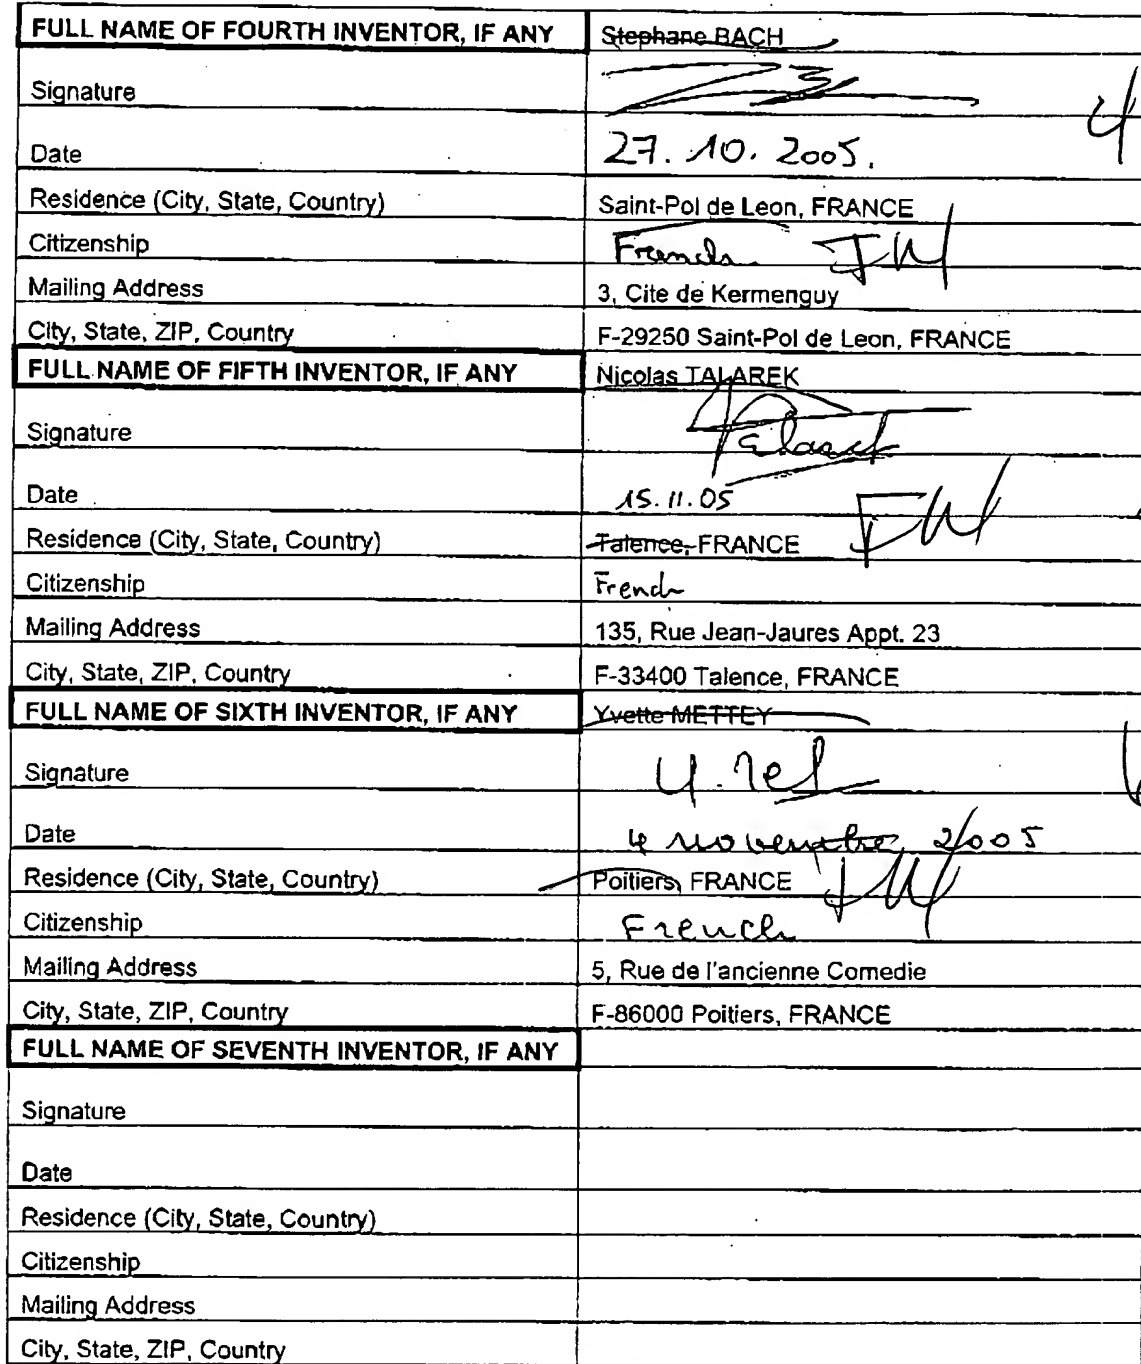 FULL NAME OF FOURTH INVENTOR, IF ANY Stephane BACH
Signature
4
Date 27. 10. 2005.
Residence (City, State, Country) Saint-Pol de Leon, FRANCE
Citizenship French
Mailing Address 3, Cite de Kermenguy
City, State, ZIP, Country F-29250 Saint-Pol de Leon, FRANCE
FULL NAME OF FIFTH INVENTOR, IF ANY Nicolas TALAREK
Signature
Date 15.11.05
Residence (City, State, Country) Talence, FRANCE
Citizenship French
Mailing Address 135, Rue Jean-Jaures Appt. 23
City, State, ZIP, Country F-33400 Talence, FRANCE
FULL NAME OF SIXTH INVENTOR, IF ANY Yvette METTEY
Signature
Date 4 novembre 2005
Residence (City, State, Country) Poitiers, FRANCE
Citizenship French
Mailing Address 5, Rue de l'ancienne Comedie
City, State, ZIP, Country F-86000 Poitiers, FRANCE
FULL NAME OF SEVENTH INVENTOR, IF ANY
Signature
Date
Residence (City, State, Country)
Citizenship
Mailing Address
City, State, ZIP, Country